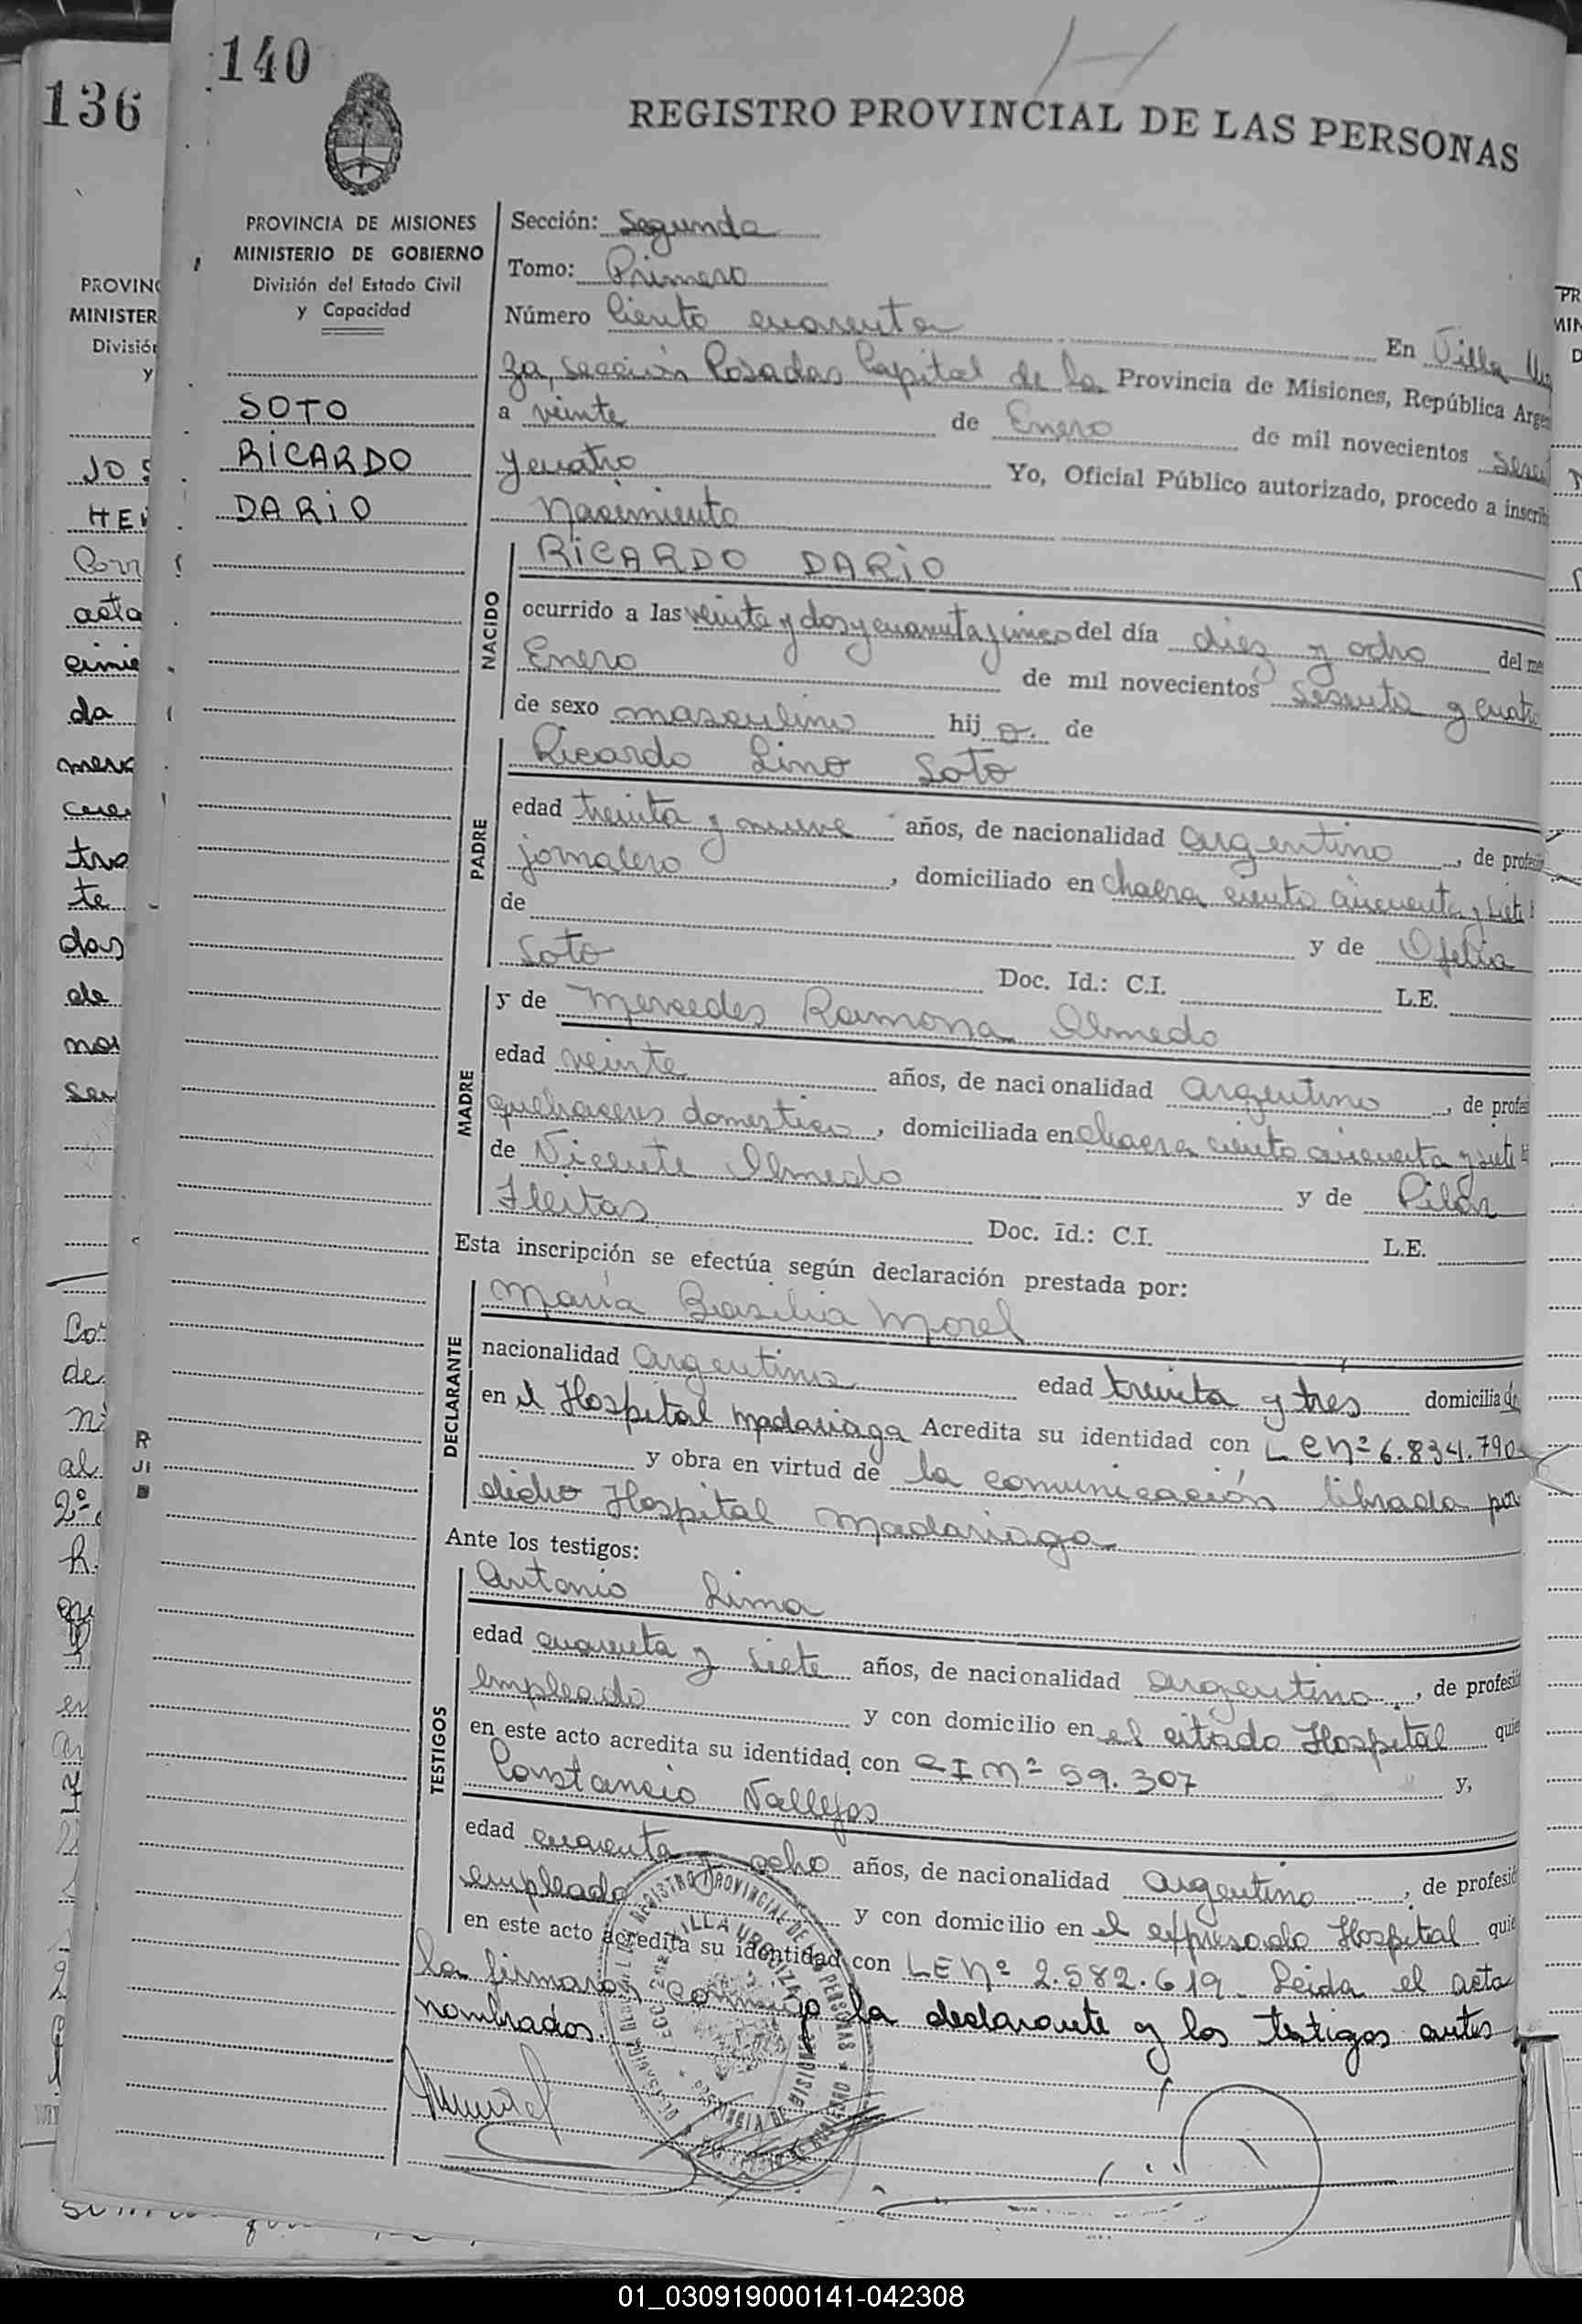 140
136
REGISTRO PROVINCIAL DE LAS PERSONAS
PROVINCIA DE MISIONES
MINISTERIO DE GOBIERNO
División del Estado Civil
y Capacidad
SOTO
RICARDO
DARIO
Sección: Segunda
Tomo: Primero
Número Ciento cuarenta
En Villa Ur
za, Sección Posadas Capital de la Provincia de Misiones, República Arge
a veinte de Enero de mil novecientos
y cuatro Yo, Oficial Público autorizado, procedo a inscrib
Nacimiento
NACIDO
RICARDO DARIO
ocurrido a las veinte y dos y cuarenta y cinco del día diez y ocho del me
Enero de mil novecientos sesenta y cuatro
de sexo masculino hij o. de
PADRE
Ricardo Lino Soto
edad treinta y nueve años, de nacionalidad argentino, de profesi
jornalero, domiciliado en chacra ciento cincuenta y siete
de y de Ofelia
Soto Doc. Id.: C.I. L.E.
MADRE
y de Mercedes Ramona Olmedo
edad veinte años, de nacionalidad argentina, de profesi
quehaceres domestico, domiciliada en chacra ciento cincuenta y siete
de Vicente Olmedo y de Pilar
Fleitas Doc. Id.: C.I. L.E.
Esta inscripción se efectúa según declaración prestada por:
DECLARANTE
María Basilia Morel
nacionalidad argentina edad treinta y tres domiciliada
en el Hospital Madariaga Acredita su identidad con L e nº 6.834.790
y obra en virtud de la comunicación librada por
dicho Hospital Madariaga
Ante los testigos:
TESTIGOS
Antonio Lima
edad cuarenta y siete años, de nacionalidad argentino, de profesió
empleado y con domicilio en el citado Hospital quie
en este acto acredita su identidad con C I nº 59.307 y,
Constancio Vallejos
edad cuarenta y ocho años, de nacionalidad argentino, de profesió
empleado y con domicilio en el expresado Hospital quie
en este acto acredita su identidad con L E Nº 2.582.619. Leida el acta
la firmaron conmigo la declarante y los testigos antes
nombrados.
01_030919000141-042308